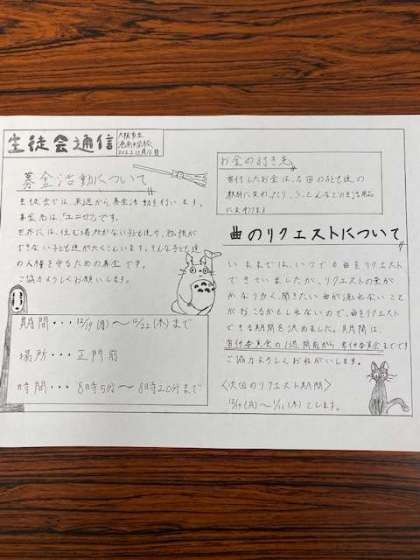 生徒会通信
大阪市立
募金活動について
生徒会では、来週から募金活動を行います。
募金先は「ユニセフ」です。
世界には、住む場所がない子ども達や、勉強が
できない子ども達がたくさんいます。そんな子ども達
の人権を守るための募金です。
ご協力よろしくお願いします。
期間・・・12/19(月)〜12/22(木)まで
場所・・・正門前
時間・・・8時5分〜8時20分まで
お金の行き先
寄付したお金は、各国の子ども達の
教材に変わったり、
に変わります
曲のリクエストについて
いままでは、いつでも曲をリクエスト
できていましたが、リクエストの量が
かなり多く、聞きたい曲が流れないこと
が
できる期間を決めました。期間は、
の1週間前から
ご協力よろしくお願いします。
〈次回のリクエスト期間〉
です。